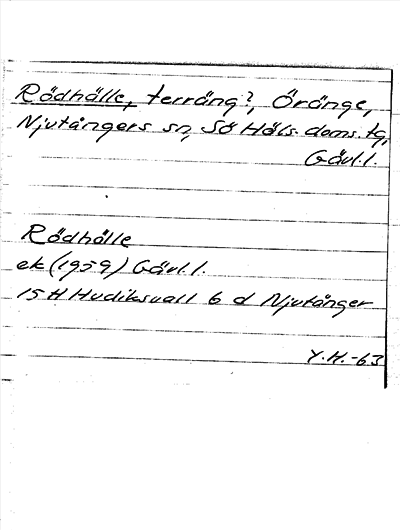 Rödhälle, terräng?, Öränge,
Njutångers sn, Sö Häls. doms. tg,
Gävl.l.
Rödhälle
ek (1959) Gävl.l.
15 H Hudiksvall 6 d Njutånger
Y.H.-63